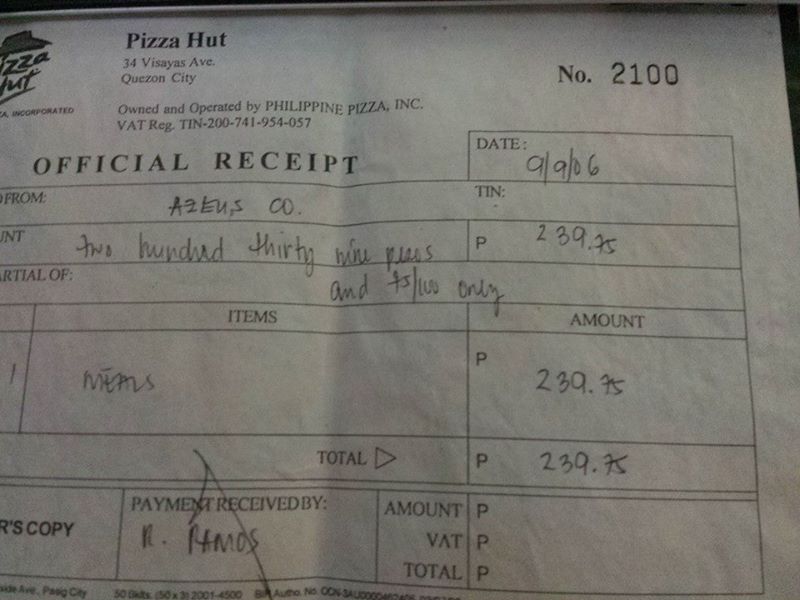 Pizza Hut
34 Visayas Ave.
Quezon City
No. 2100
izza
Hut
A, INCORPORATED
Owned and Operated by PHILIPPINE PIZZA, INC.
VAT Reg. TIN-200-741-954-057
OFFICIAL RECEIPT
DATE:
9/9/06
FROM:
AZEUS CO.
TIN:
UNT
two hundred thirty nine pesos
P 239.75
ARTIAL OF:
and 75/100 only
ITEMS AMOUNT
1 MEALS P 239.75
TOTAL P 239.75
R'S COPY
PAYMENT RECEIVED BY:
R. RAMOS
AMOUNT P
VAT P
TOTAL P
Ave., Pasig City 50 Bklts. (50 x 3) 2001-4500 BIR Autho. No.